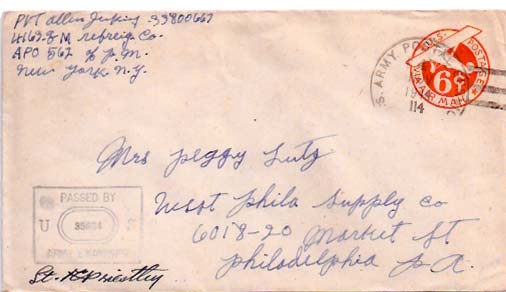 PVT Allen Jenkins 33800667
APO 562 % P.M.
New York. N.Y.
U.S. ARMY POSTAL
19
114
U.S. POSTAGE
6¢
VIA AIR MAIL
Mrs Peggy Lutz
West Phila Supply Co
6018-20 Market St
Philadelphia P A.
PASSED BY
U S
ARMY EXAMINER